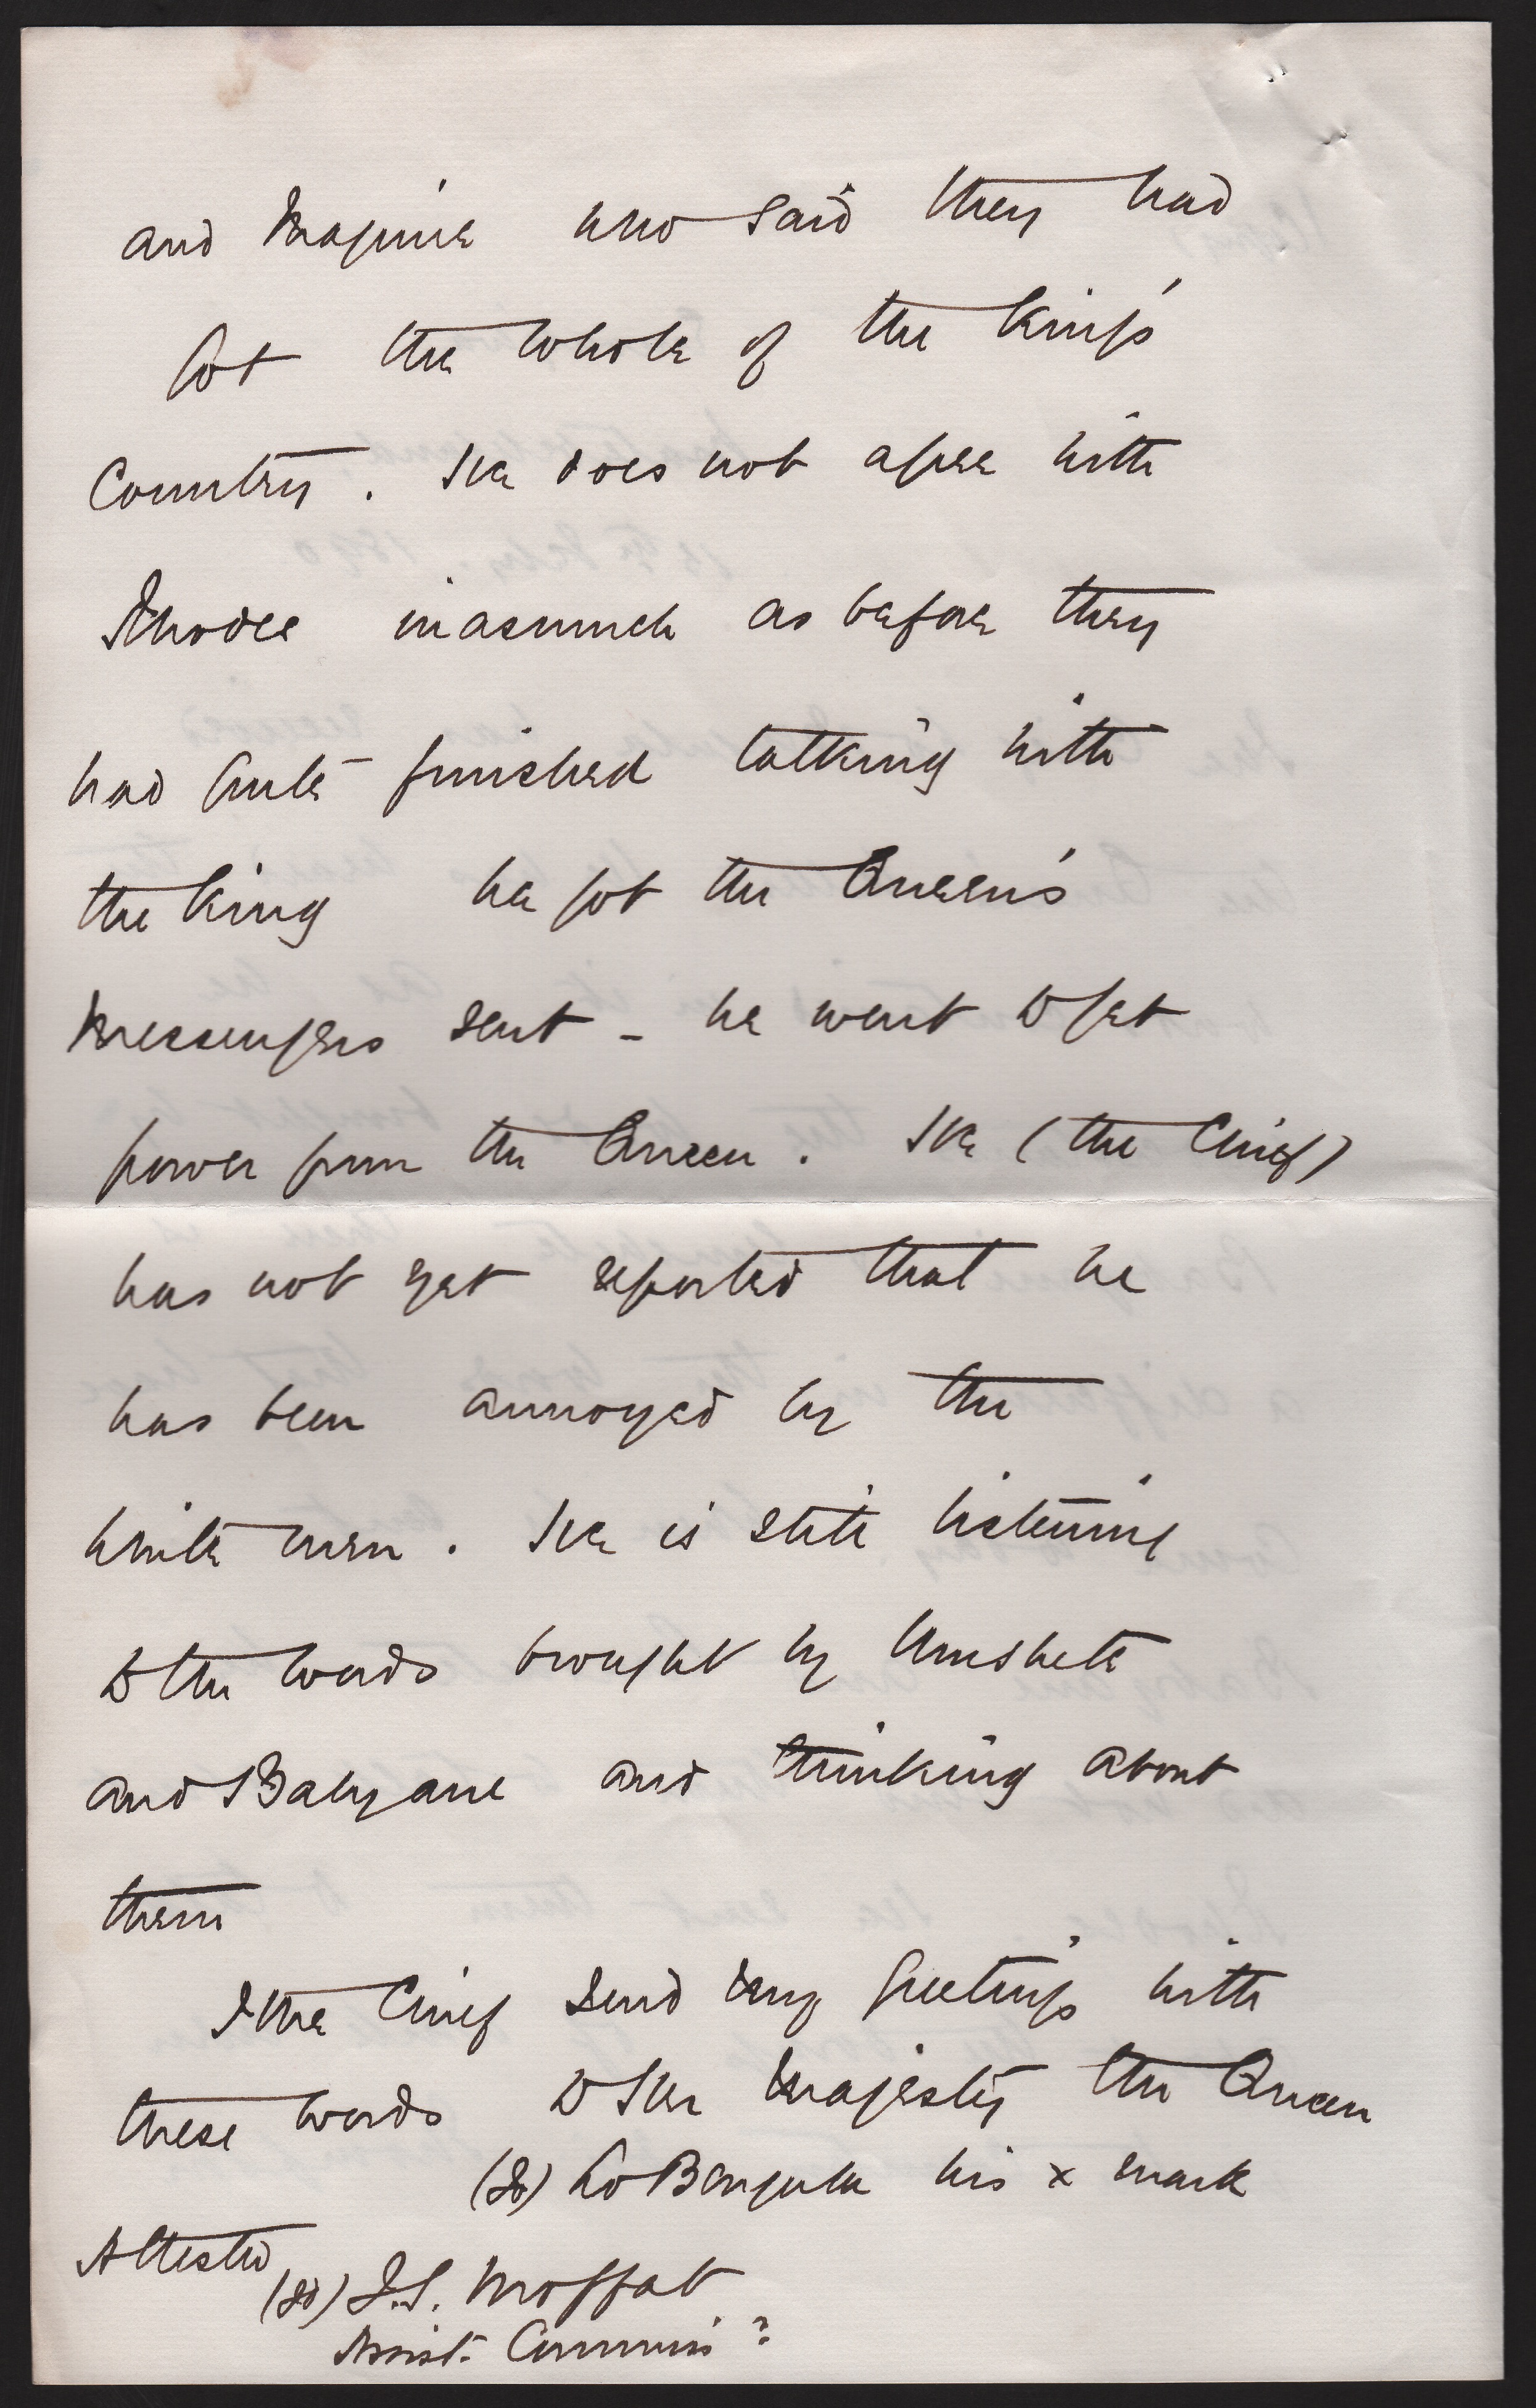 and Maguire who said they had
got the whole of the King's
Country. He does not agree with
Rhodes inasmuch as before they
had quite finished talking with
the King he got the Queen's
Messengers sent - he went to get
power from the Queen. He (the Chief)
has not yet reported that he
has been annoyed by the
white men. He is still listening
to the words brought by Umshete
and Babyane and thinking about
them
I the Chief send my greetings with
these words to Her Majesty the Queen
(Sd) Lo Bengula his x mark
Attested
(Sd) J.S. Moffat
Assist. Commiss: